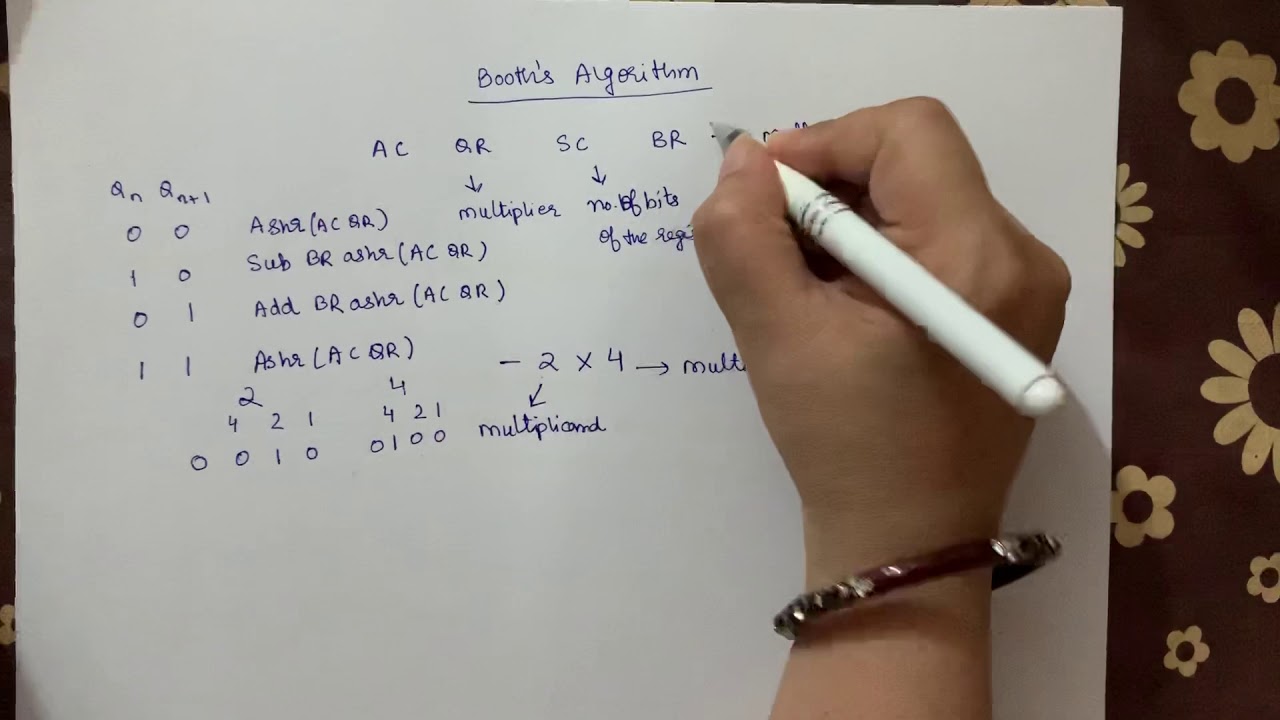 Booth's Algorithm
AC QR SC BR
Qn Qn+1
↓ ↓
multiplier no. of bits
of the
0 0 Ashr (AC QR)
1 0 Sub BR ashr (AC QR)
0 1 Add BR ashr (AC QR)
1 1 Ashr (AC QR)
- 2 × 4 →
2 4
4 2 1 4 2 1
0 0 1 0 0 1 0 0
multiplicand